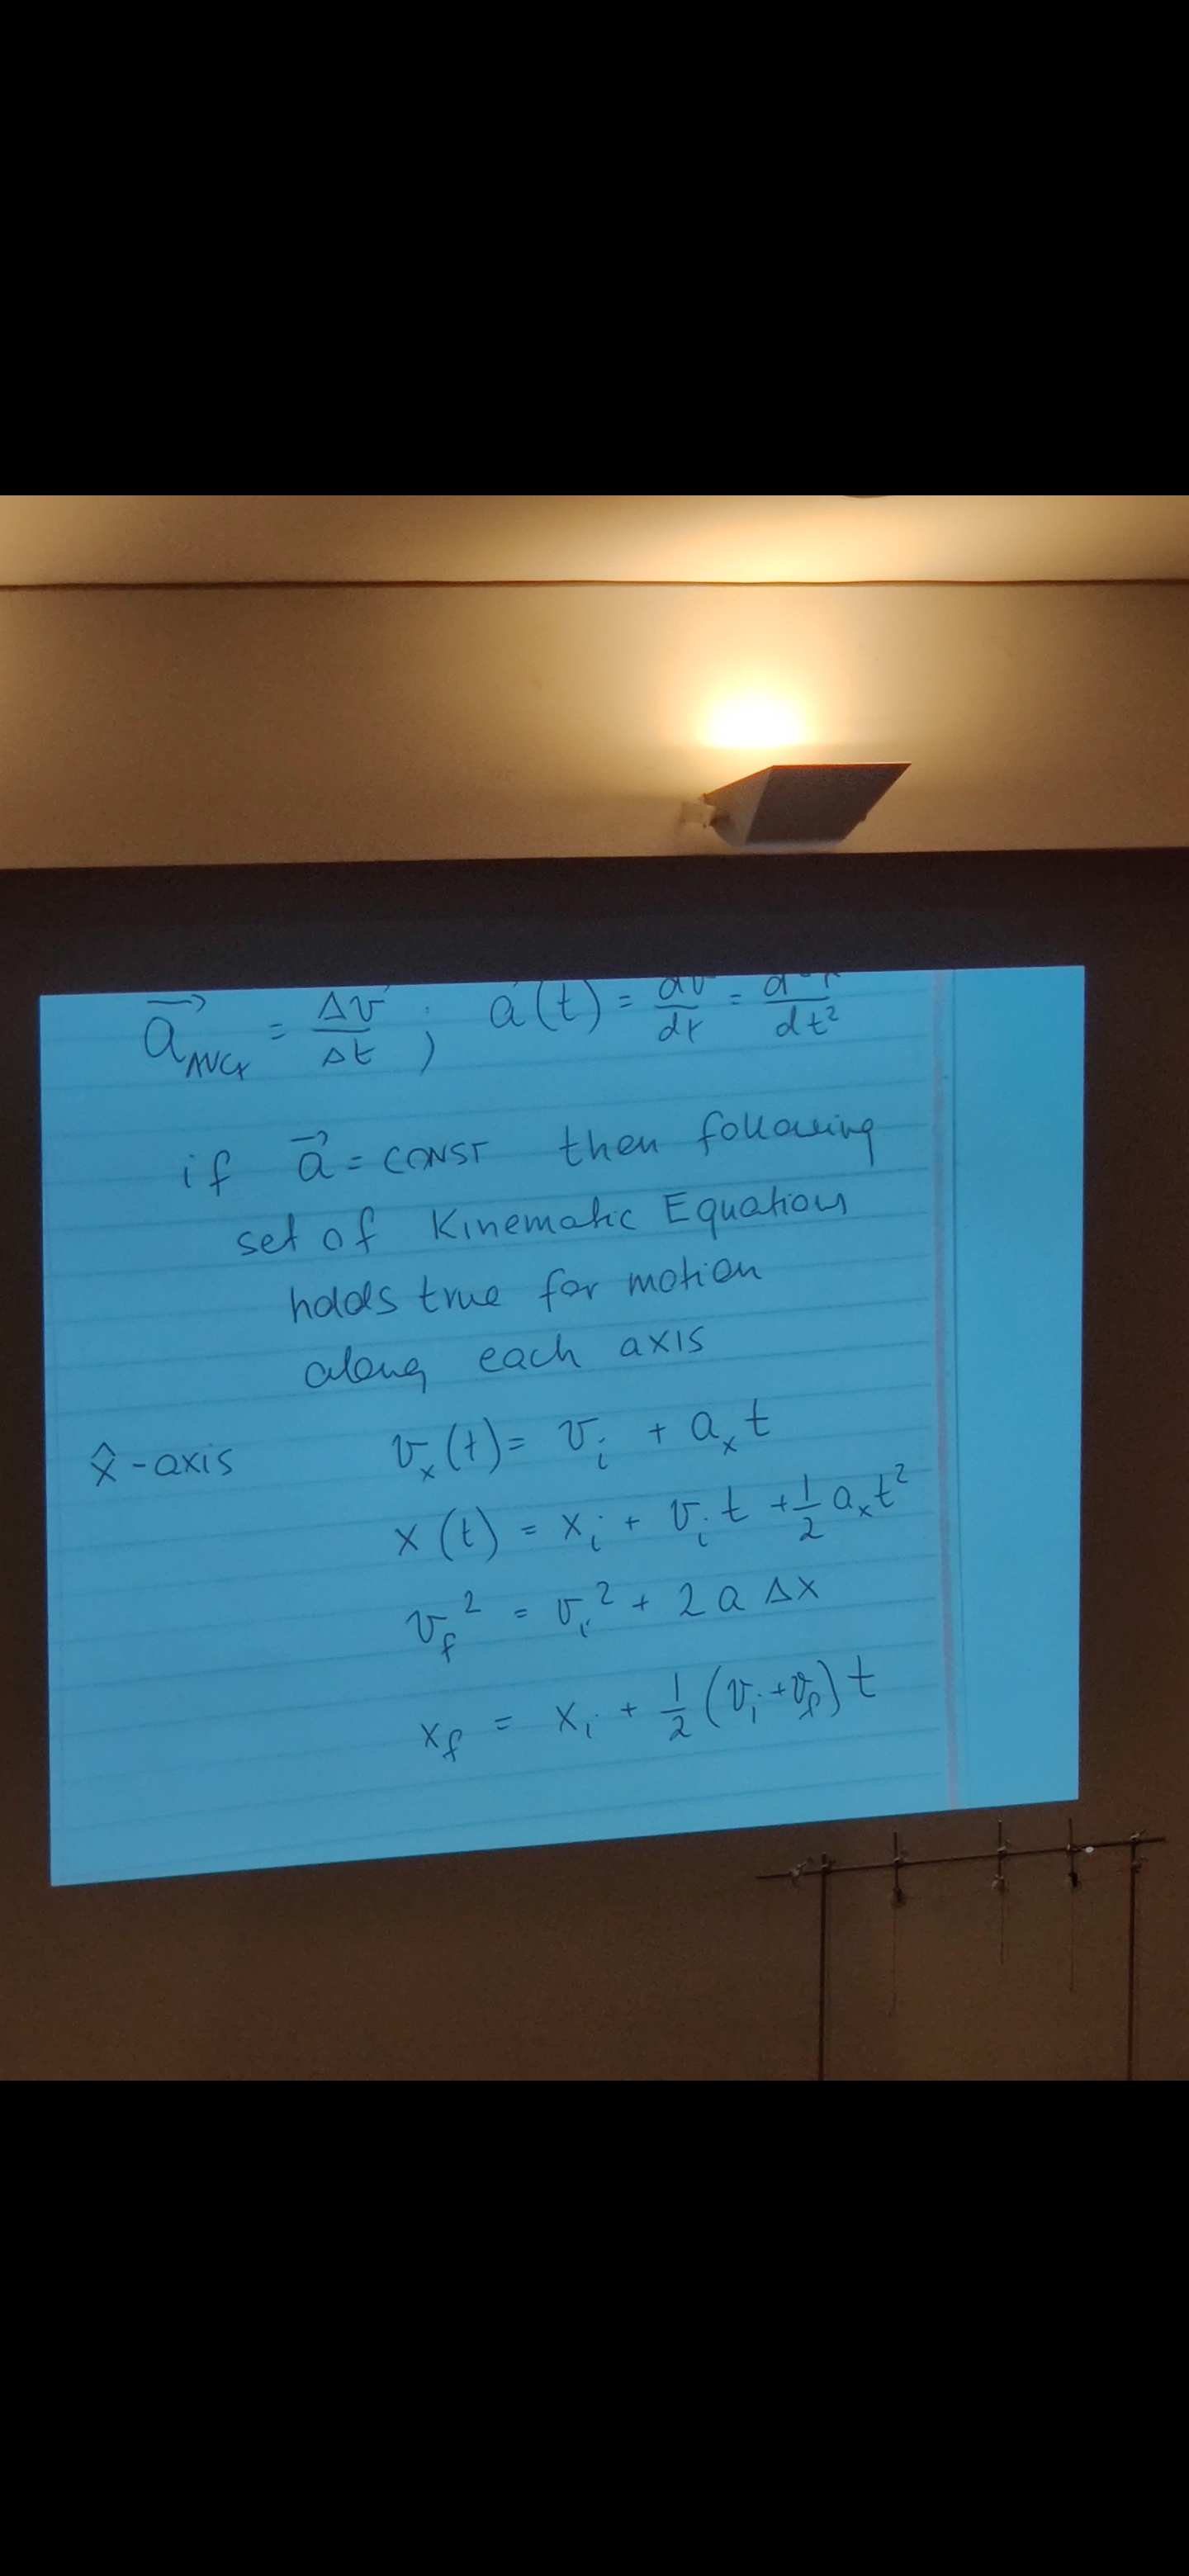 a⃗ AVG = Δv / Δt ; a(t) = dv/dt = d²r/dt²
if a⃗ = CONST then following
set of Kinematic Equations
holds true for motion
along each axis
x̂-axis vₓ(t) = vᵢ + aₓt
x(t) = xᵢ + vᵢt + ½aₓt²
v_f² = vᵢ² + 2aΔx
x_f = xᵢ + ½(vᵢ + v_f)t